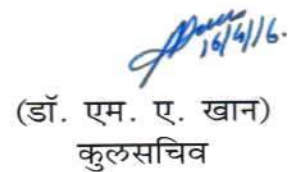 16/4/16.
(डॉ. एम. ए. खान)
कुलसचिव